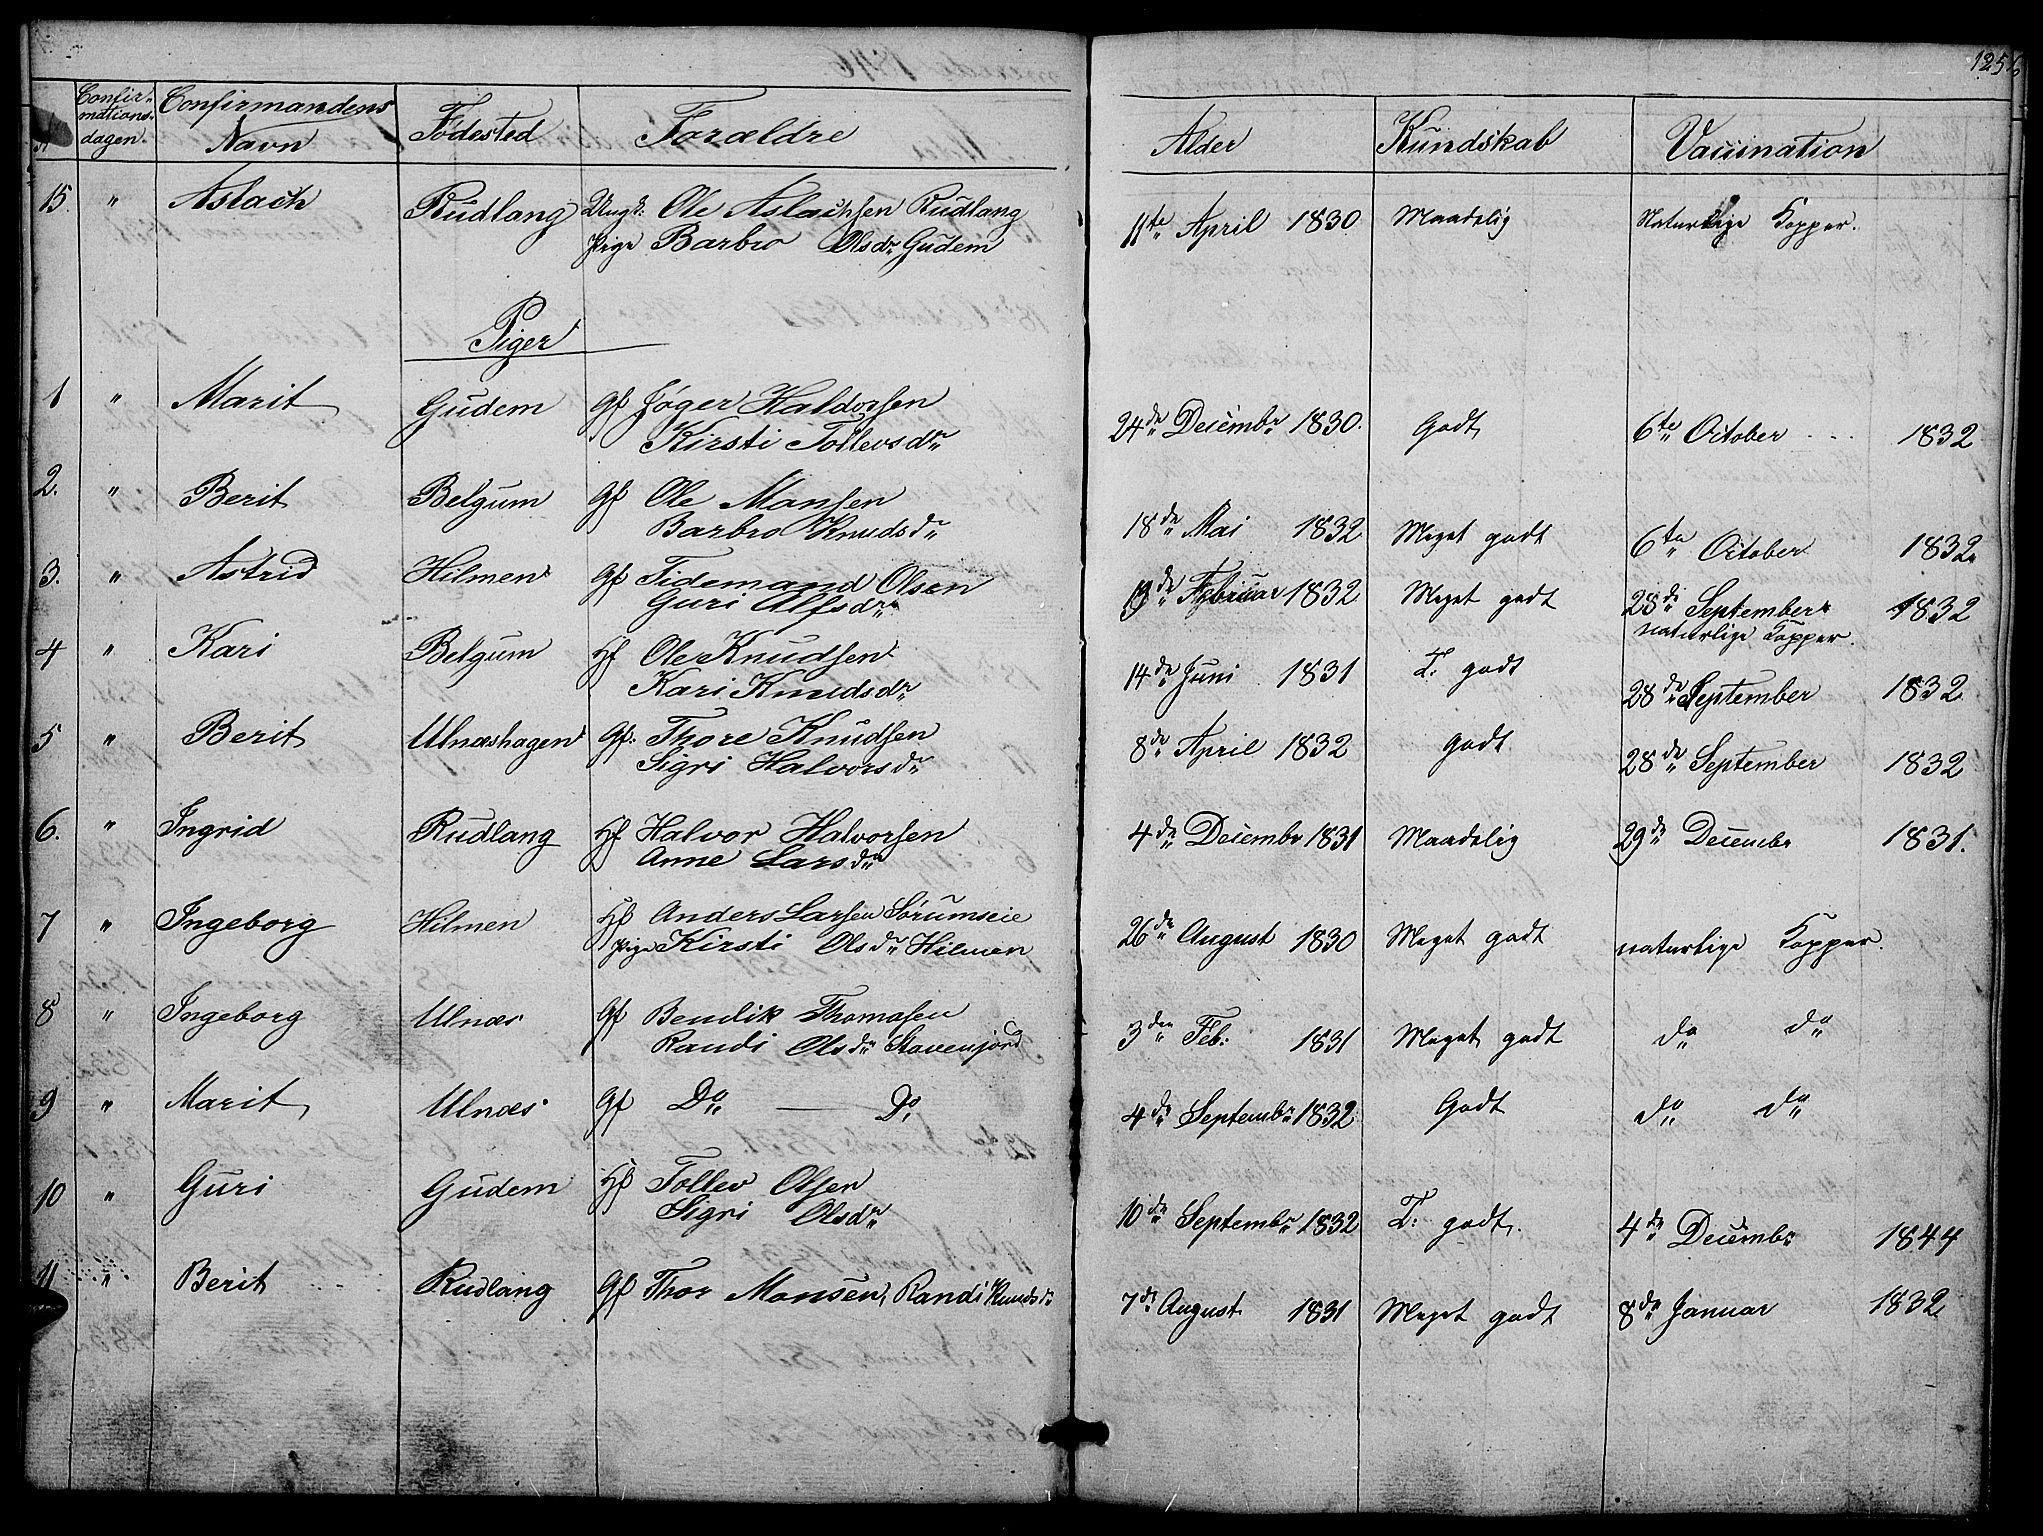 125
Confir-
mations-
dagen.
Confirmandens
Navn
Fødested
Forældre
Alder
Kundskab
Vaccination
15. " Aslach Rudlang Ungk: Ole Aslachsen Rudlang 11te April 1830 Maadelig Naturlige Kopper.
Pige Barbro Olsdr Gudem
Piger
1 " Marit Gudem Gf Jøger Haldorsen 24de Decembr 1830. Godt 6te October 1832
Kirsti Tollevsdr
2. " Berit Belgum Gf Ole Monsen 18de Mai 1832 Meget godt 6te October 1832.
Barbro Knudsdr
3. " Astrid Hilmen Gf Tidemand Olsen 19de Februar 1832 Meget godt 28de September 1832
Guri Alfsdr naturlige Kopper.
4 " Kari Belgum Hf Ole Knudsen 14de Juni 1831 T: godt 28de September 1832
Kari Knudsdr
5 " Berit Ulnæshagen Gf: Thore Knudsen 8de April 1832 godt 28de September 1832
Sigri Halvorsdr
6. " Ingrid Rudlang Hf Halvor Halvorsen 4de Decembr 1831 Maadelig 29de Decembr 1831.
Anne Larsdr
7 " Ingeborg Hilmen Hf Anders Larsen Sørumseie 26de August 1830 Meget godt naturlige Kopper.
Pige Kirsti Olsdr Hilmen
8 " Ingeborg Ulnæs Gf Bendik Thomasen 3den Feb: 1831 Meget godt do do
Randi Olsdr Stavenjord
9 " Marit Ulnæs Gf Do — Do 4de Septembr 1832 Godt do do
10 " Guri Gudem Hf Tollev Olsen 10de Septembr 1832 T: godt. 4de Decembr 1844
Sigri Olsdr
11 " Berit Rudlang Gf Thor Monsen, Randi Knudsdr 7de August 1831 Meget godt 8de Januar 1832